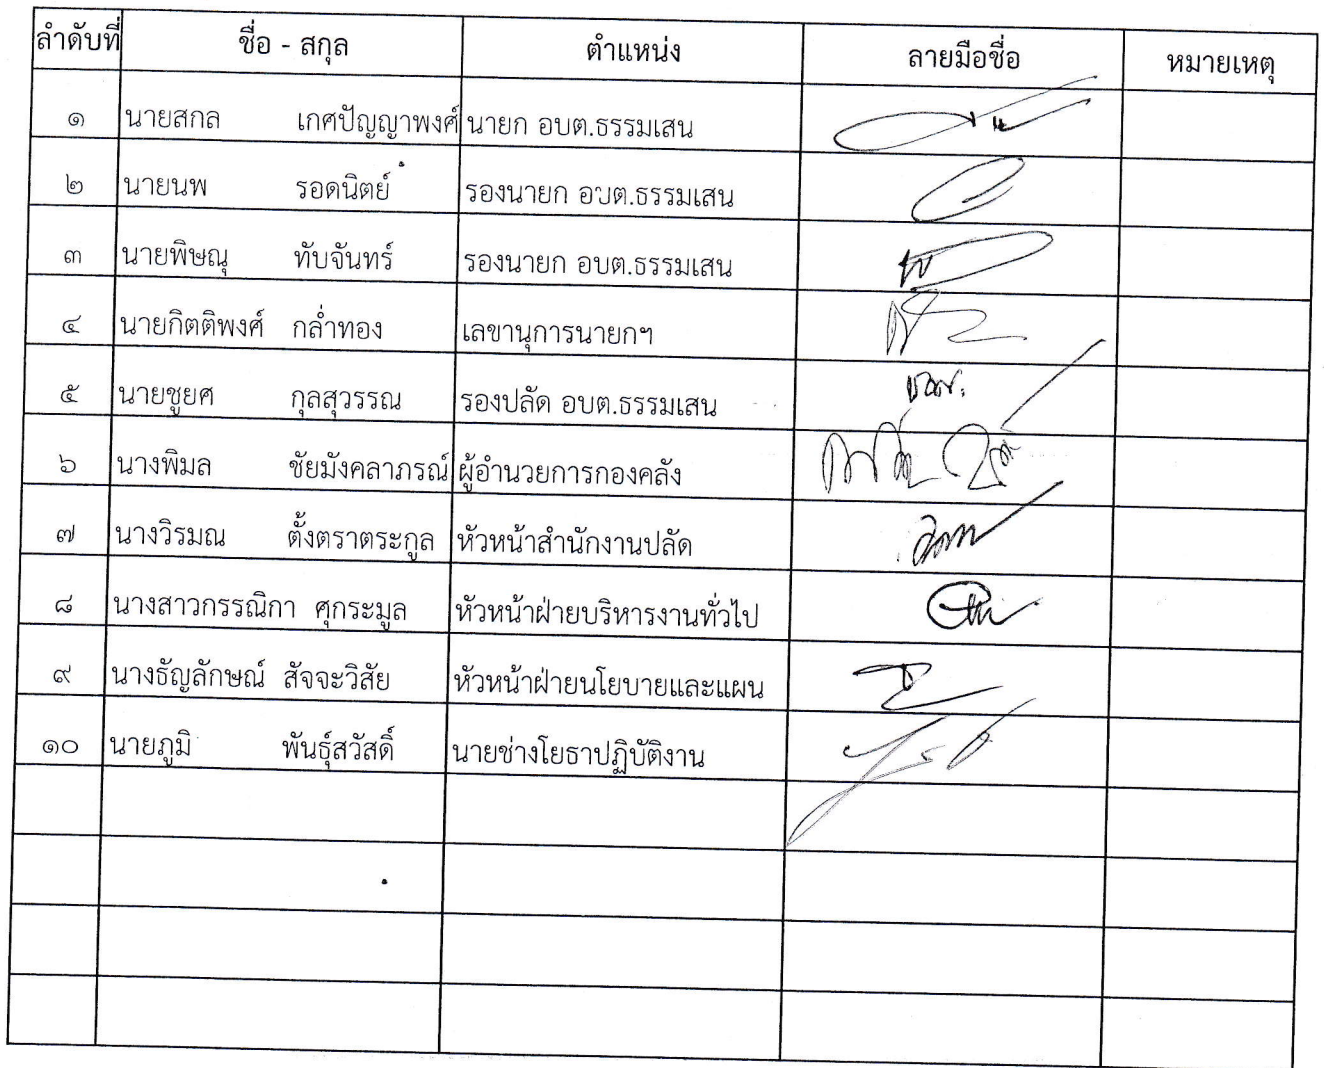 ลำดับที่ ชื่อ - สกุล ตำแหน่ง ลายมือชื่อ หมายเหตุ
๑ นายสกล เกศปัญญาพงศ์ นายก อบต.ธรรมเสน
๒ นายนพ รอดนิตย์ รองนายก อบต.ธรรมเสน
๓ นายพิษณุ ทับจันทร์ รองนายก อบต.ธรรมเสน
๔ นายกิตติพงศ์ กล่ำทอง เลขานุการนายกฯ
๕ นายชูยศ กุลสุวรรณ รองปลัด อบต.ธรรมเสน
๖ นางพิมล ชัยมังคลาภรณ์ ผู้อำนวยการกองคลัง
๗ นางวิรมณ ตั้งตราตระกูล หัวหน้าสำนักงานปลัด
๘ นางสาวกรรณิกา ศุกระมูล หัวหน้าฝ่ายบริหารงานทั่วไป
๙ นางธัญลักษณ์ สัจจะวิสัย หัวหน้าฝ่ายนโยบายและแผน
๑๐ นายภูมิ พันธุ์สวัสดิ์ นายช่างโยธาปฏิบัติงาน